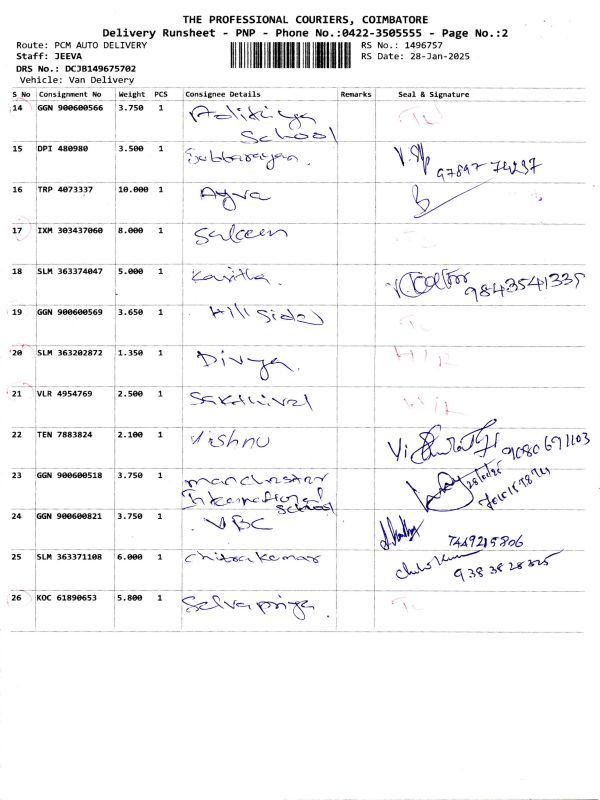 THE PROFESSIONAL COURIERS, COIMBATORE
Delivery Runsheet - PNP - Phone No.:0422-3505555 - Page No.:2
Route: PCM AUTO DELIVERY RS No.: 1496757
Staff: JEEVA RS Date: 28-Jan-2025
DRS No.: DCJB149675702
Vehicle: Van Delivery
S No Consignment No Weight PCS Consignee Details Remarks Seal & Signature
14 GGN 900600566 3.750 1 Adlithiya
School
15 DPI 480980 3.500 1 Subbarayan.
97897 74237
16 TRP 4073337 10.000 1 Ayva
17 IXM 303437060 8.000 1 Saleem
18 SLM 363374047 5.000 1 Kavitha.
9843541335
19 GGN 900600569 3.650 1 Hill Side
20 SLM 363202872 1.350 1 Divya.
21 VLR 4954769 2.500 1 Sakthivel
22 TEN 7883824 2.100 1 Vishnu
9080691103
23 GGN 900600518 3.750 1 Manchester
International
School
24 GGN 900600821 3.750 1 VBC
7449215806
25 SLM 363371108 6.000 1 Chitrakumar
9383828325
26 KOC 61890653 5.800 1 Selvapriya